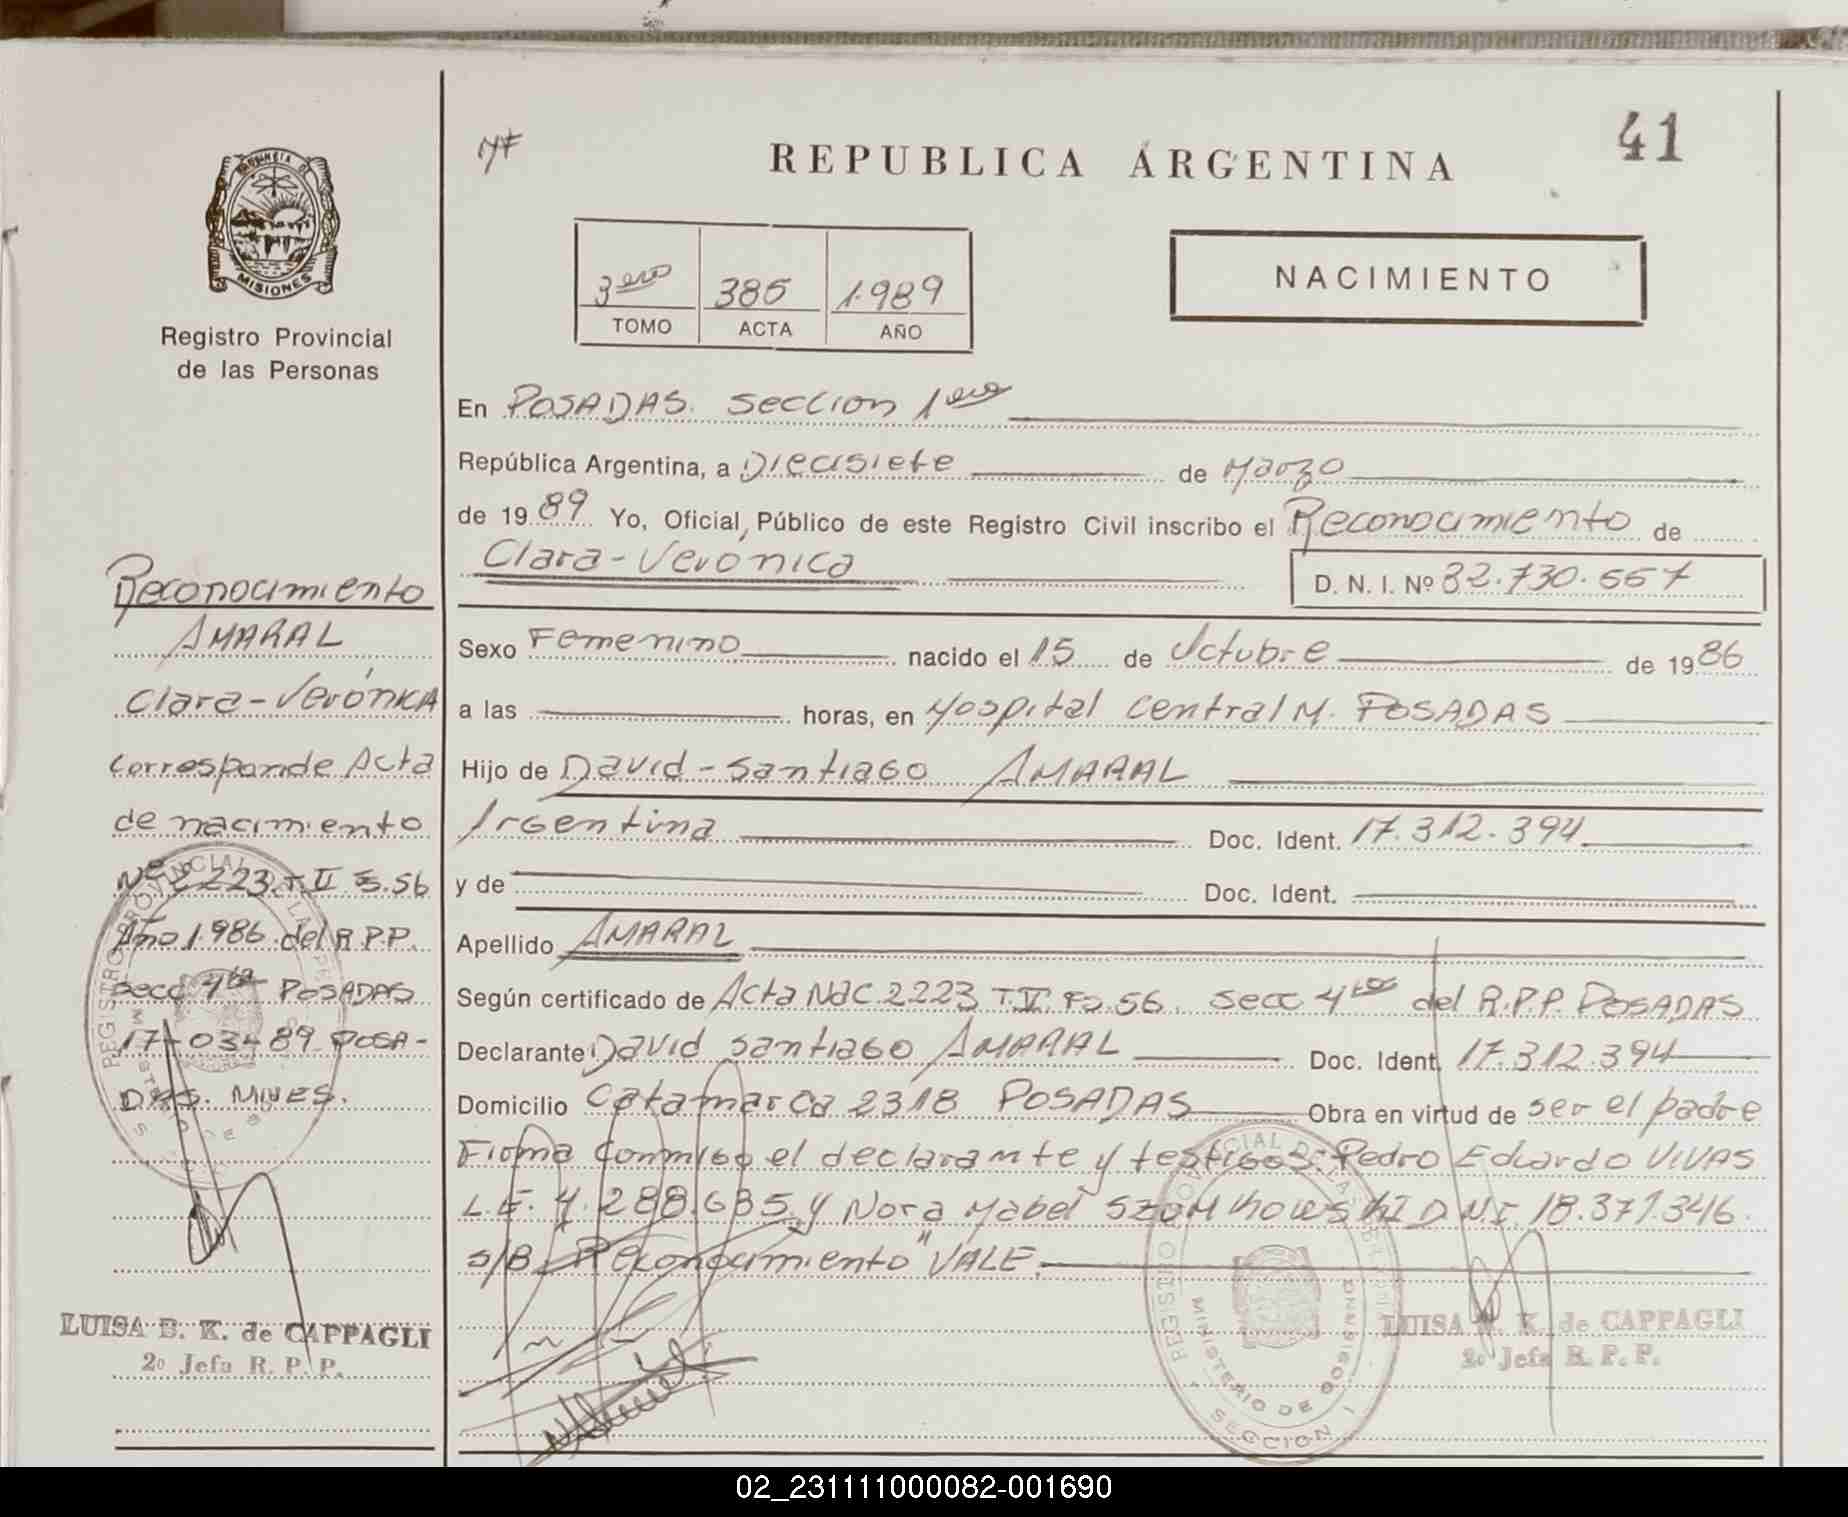 41
REPUBLICA ARGENTINA
PROVINCIA DE
MISIONES
Registro Provincial
de las Personas
3ero 385 1.989
TOMO ACTA AÑO
NACIMIENTO
En POSADAS. seccion 1era
República Argentina, a Diecisiete de Marzo
de 1989 Yo, Oficial Público de este Registro Civil inscribo el Reconocimiento de
Clara-Veronica D. N. I. Nº 32.730.557
Sexo Femenino nacido el 15 de Octubre de 1986
a las horas, en Hospital central M. POSADAS
Hijo de David-Santiago AMARAL
Argentina Doc. Ident. 17.312.394
y de Doc. Ident.
Apellido AMARAL
Según certificado de Acta Nac. 2223 T. Fs.56. secc 4ta del R.P.P. POSADAS
Declarante David Santiago AMARAL Doc. Ident. 17.312.394
Domicilio Catamarca 2318 POSADAS Obra en virtud de ser el padre
Firma conmigo el declarante y testigos: Pedro Eduardo VIVAS
L.E. 4.288.635 y Nora Mabel D.N.I. 18.371.346.
s/B Reconocimiento" VALE.
Reconocimiento
AMARAL
Clara-Verónica
corresponde Acta
de nacimiento
Nº 2223 T. II Fs.56
Año 1.986 del R.P.P.
secc 4ta POSADAS
17-03-89 POSA-
DAS. MNES.
LUISA B. K. de CAPPAGLI
2º Jefa R. P. P.
REGISTRO PROVINCIAL DE LAS PERSONAS
MINISTERIO DE GOBIERNO
SECCION 1
LUISA B. K. de CAPPAGLI
2º Jefa R. P. P.
02_231111000082-001690